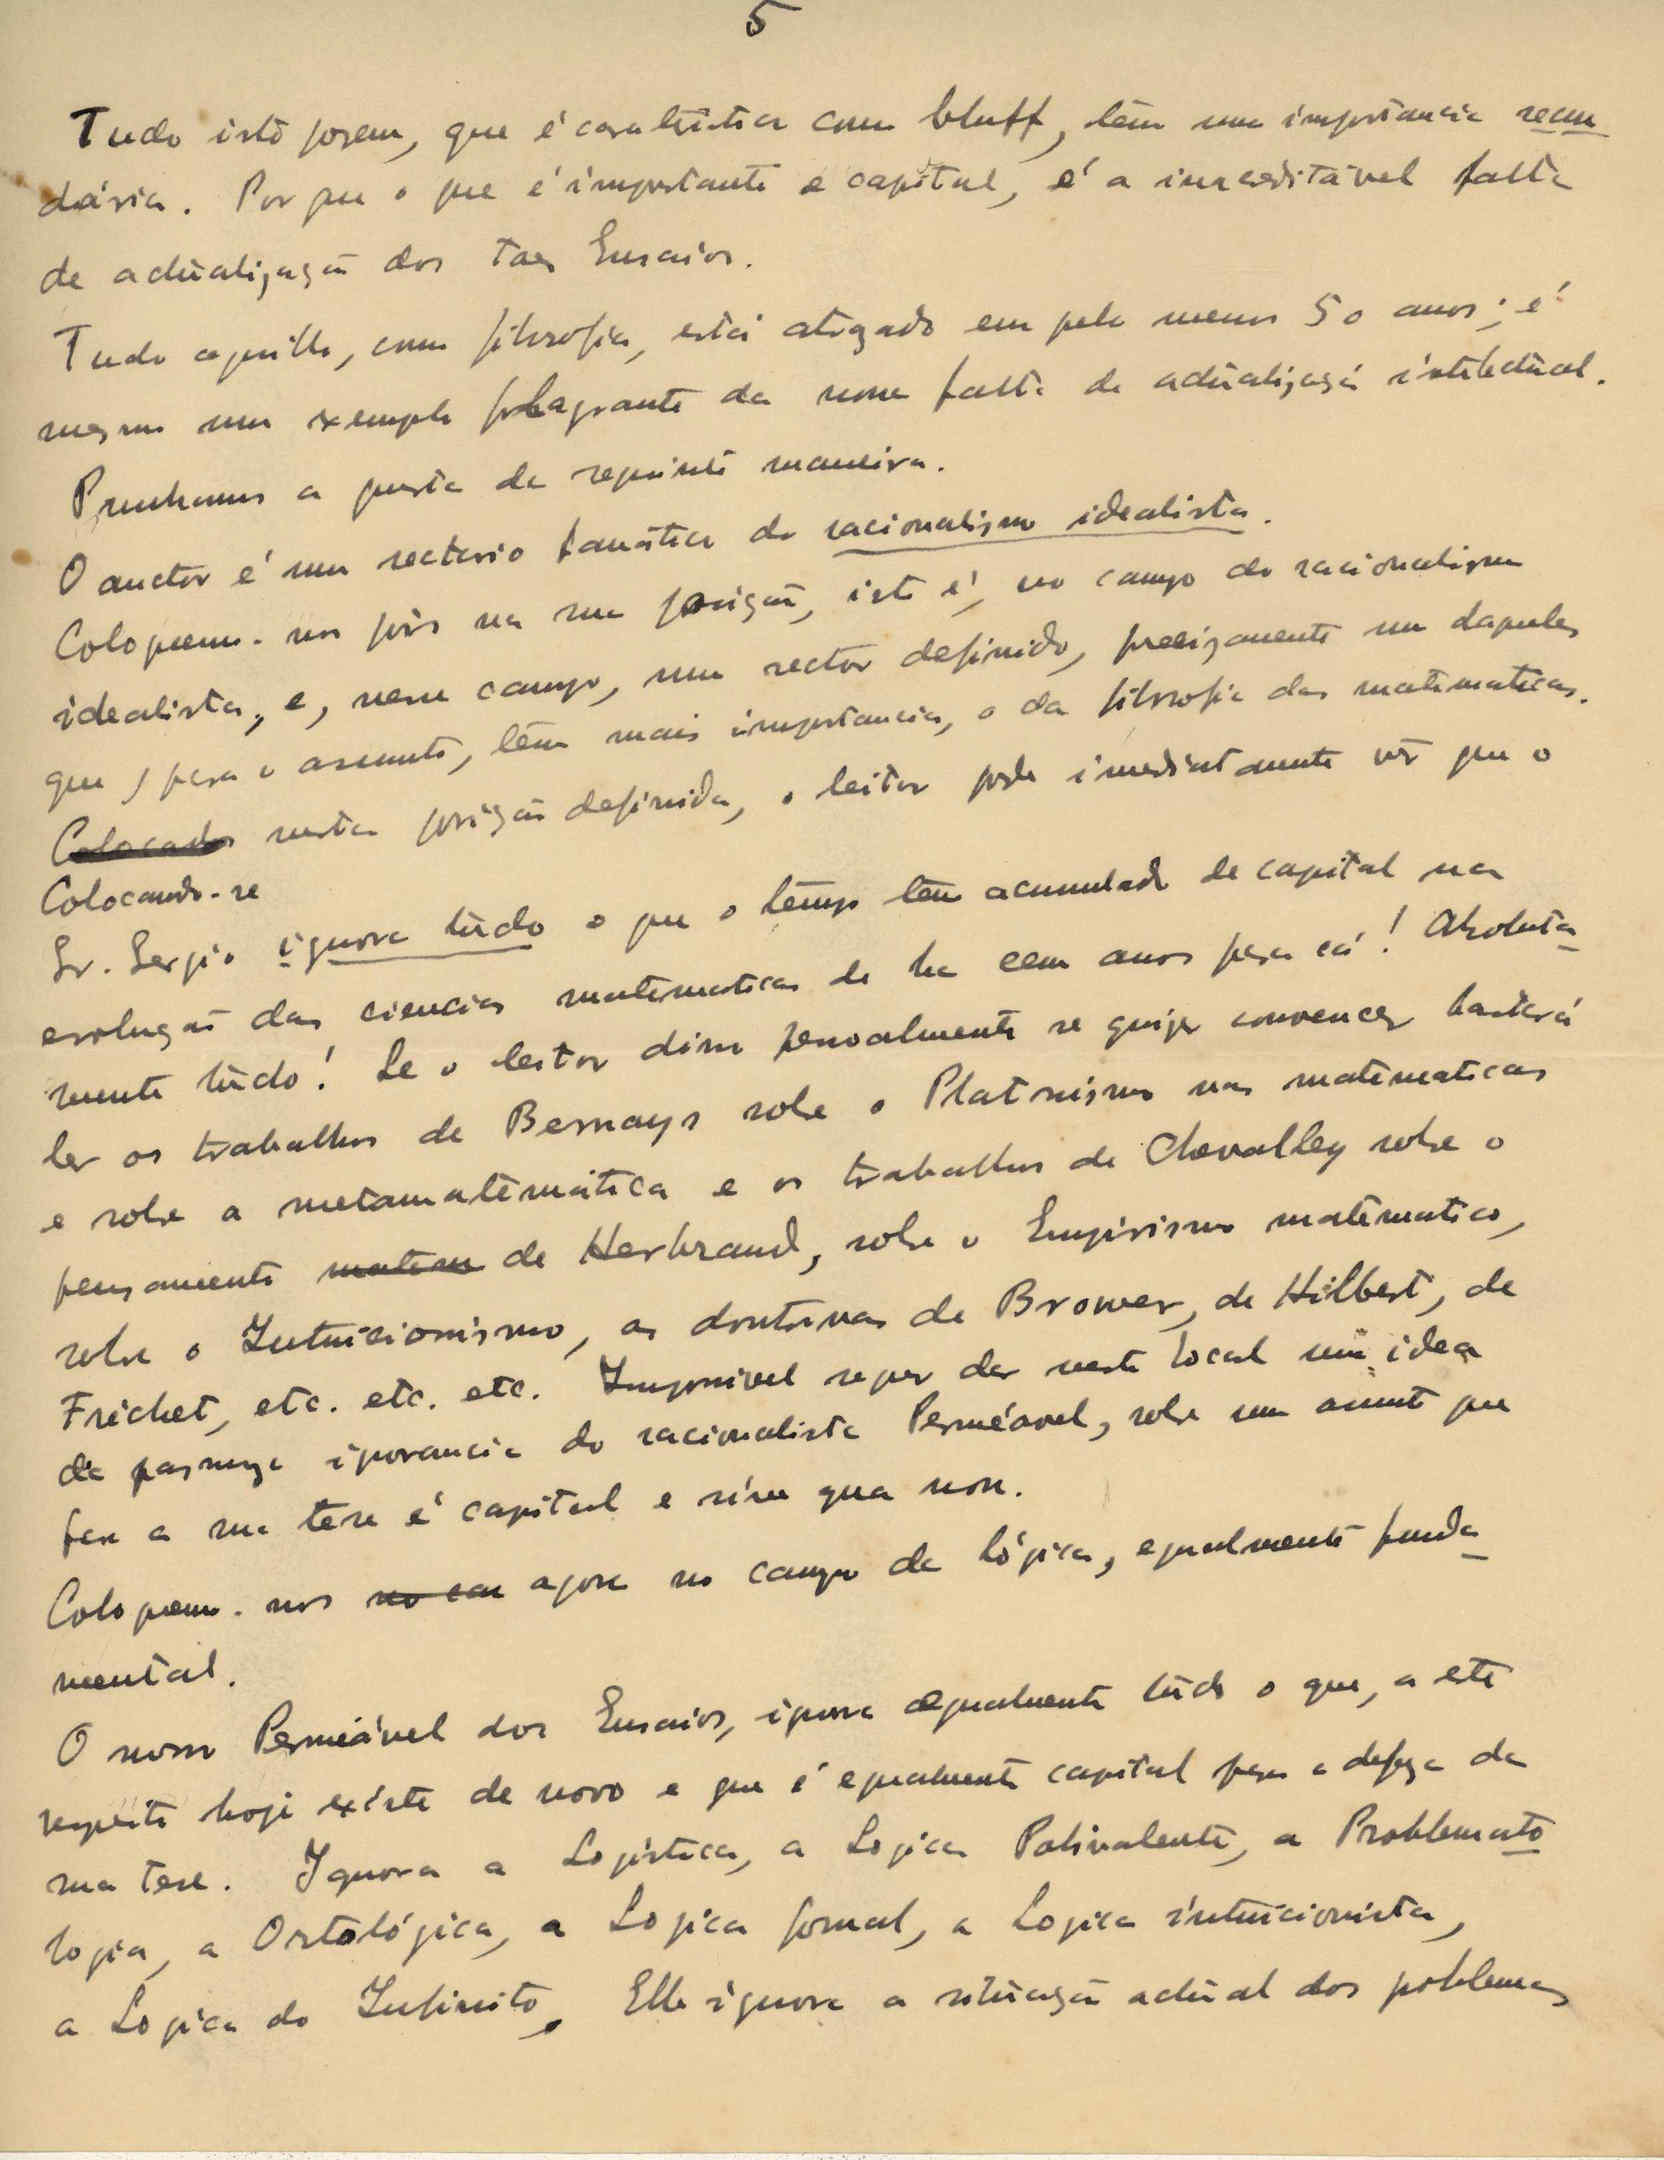 5
Tudo isto porem, que é caracteristica como bluff, têm uma importancia secun
dária. Por que o que é importante e capital, é a inacreditável falta
de actualização dos taes Ensaios.
Tudo aquillo, como filosofia, está atrazado em pelo menos 50 anos; é
mesmo um exemplo flagrante da nossa falta de actualização intelectual.
Ponhamos a questa da seguinte maneira.
O auctor é um sectario fanático do racionalismo idealista.
Coloquemo-nos pois na sua posição, isto é, no campo do racionalismo
idealista, e, nesse campo, num sector definido, precizamente um daqueles
que, para o assunto, têm mais importancia, o da filosofia das matematicas.
Colocados nesta posição definida, o leitor pode imediatamente vêr que o
Colocando-se
Sr. Sergio ignora tudo o que o tempo tem acumulado de capital na
evolução das ciencias matematicas de ha cem anos para cá! Absoluta
mente tudo! Se o leitor disso pessoalmente se quizer convencer bastará
ler os trabalhos de Bernays sobre o Platonismo nas matematicas
e sobre a metamatemática e os trabalhos de Chevalley sobre o
pensamento matem de Herbrand, sobre o Empirismo matematico,
sobre o Intuicionismo, as doutrinas de Brower, de Hilbert, de
Frechet, etc. etc. etc. Impossivel sequer dar neste local uma idea
da pasmoza ignorancia do racionalista Permeável, sobre um assunto que
para a sua tese é capital e sine qua non.
Coloquemo-nos no cam agora no campo da lógica, egualmente funda
mental.
O nosso Permeável dos Ensaios, ignora egualmente tudo o que, a este
respeito hoje existe de novo e que é egualmente capital para a defeza da
sua tese. Ignora a Logistica, a Logica Polivalente, a Problemato
logia, a Ortológica, a Logica formal, a Logica intuicionista,
a Logica do Infinito. Elle ignora a situação actual dos problemas